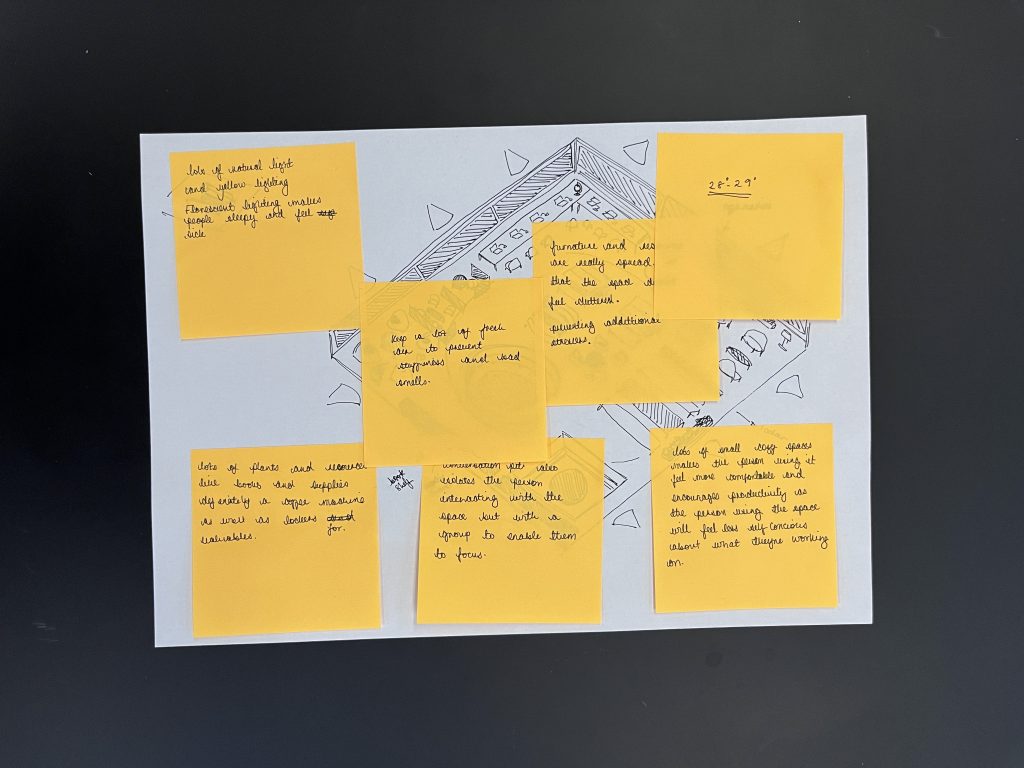 lots of natural light
and yellow lighting
Florescient lighting makes
people sleepy and feel
sick
28°-29°
furnature and res
are really spread
that the space d
feel cluttered.
preventing addditional
stressers.
Keep a lot of fresh
air to prevent
stuffiness and bad
smells.
lots of plants and
like books and supplies
definately a coffee machine
as well as lockers
for
valuables.
book
shelf
conversation yet also
isolates the person
interacting with the
space but with a
group to enable them
to focus.
lots of small cozy spaces
makes the person using it
feel more comfortable and
encourages productivity as
the person using the space
will feel less self concious
about what theyre working
on.